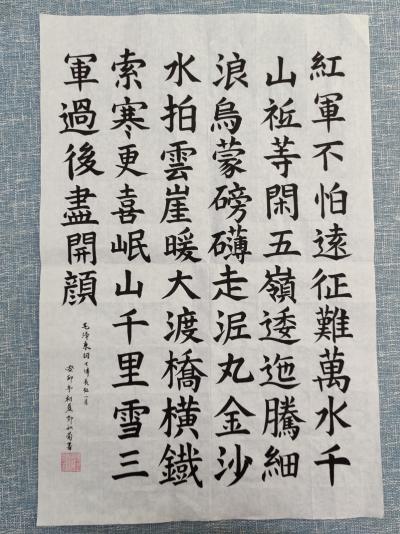 紅軍不怕遠征難萬水千
山祗等閑五嶺逶迤騰細
浪烏蒙磅礴走泥丸金沙
水拍雲崖暖大渡橋橫鐵
索寒更喜岷山千里雪三
軍過後盡開顔
毛澤東詞七律長征一首
癸卯年初夏書